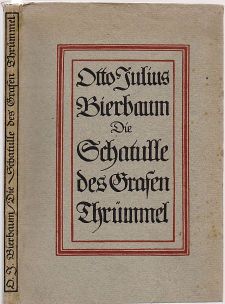 Otto Julius
Bierbaum
Die
Schatulle
des Grafen
Thrümmel
O. J. Bierbaum / Die Schatulle des Grafen Thrümmel